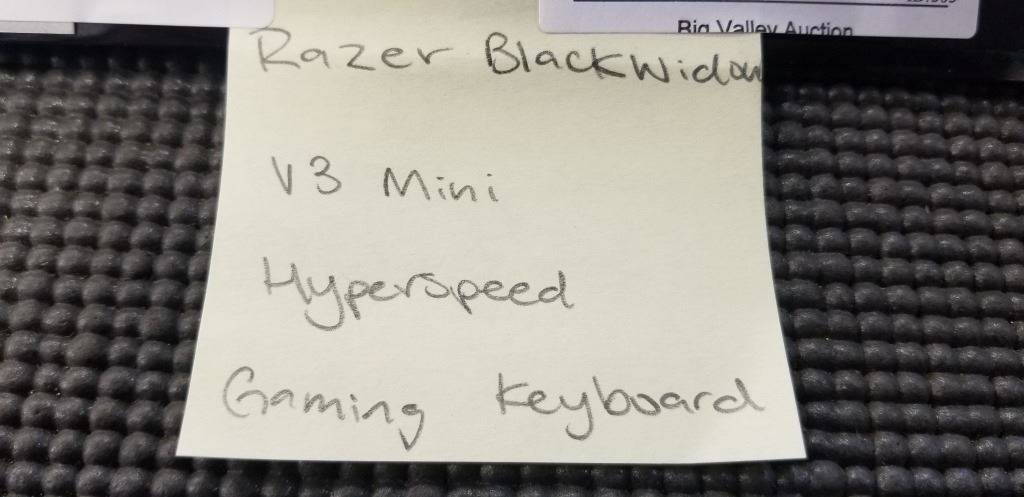 Big Valley Auction
Razer BlackWidow
V3 Mini
Hyperspeed
Gaming Keyboard